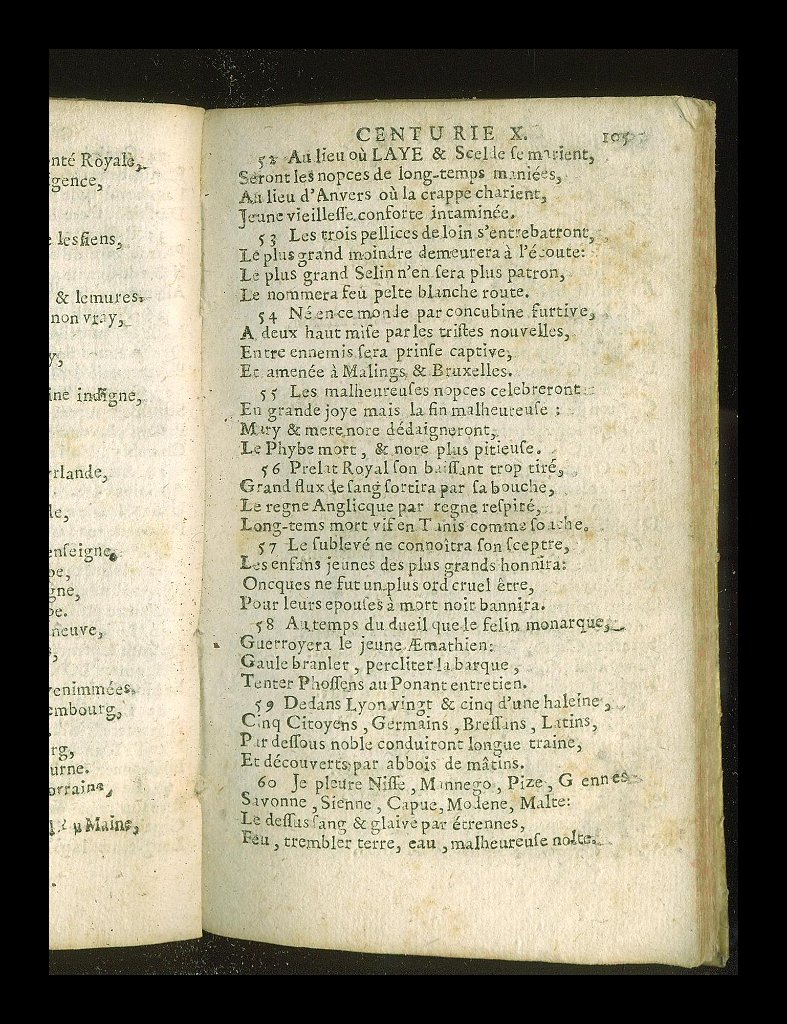 nté Royale,
gence,
lesſiens,
& lemures.
non vray,
y,
ine indigne,
rlande,
le,
enſeigne,
pe,
gne,
pe.
neuve,
s,
venimmées.
embourg,
rg,
urne.
orraine,
u Maine,
CENTURIE X. 105
52 Au lieu où LAYE & Scelde ſe marient,
Seront les nopces de long-temps maniées,
Au lieu d'Anvers où la crappe charient,
Jeune vieilleſſe conforte intaminée.
53 Les trois pellices de loin s'entrebatront,
Le plus grand moindre demeurera à l'écoute:
Le plus grand Selin n'en ſera plus patron,
Le nommera feu pelte blanche route.
54 Né en ce monde par concubine furtive,
A deux haut miſe par les triſtes nouvelles,
Entre ennemis ſera prinſe captive,
Et amenée à Malings & Bruxelles.
55 Les malheureuſes nopces celebreront
En grande joye mais la fin malheureuſe :
Mary & mere nore dédaigneront,
Le Phybe mort, & nore plus pitieuſe.
56 Prelat Royal ſon baiſſant trop tiré,
Grand flux de ſang ſortira par ſa bouche,
Le regne Anglicque par regne reſpiré,
Long-tems mort vif en Tunis comme ſouche.
57 Le ſublevé ne connoîtra ſon ſceptre,
Les enfans jeunes des plus grands honnira:
Oncques ne fut un plus ord cruel être,
Pour leurs epouſes à mort noir bannira.
58 Au temps du dueil que le felin monarque,
Guerroyera le jeune Æmathien:
Gaule branler, perclíter la barque,
Tenter Phoſſens au Ponant entretien.
59 Dedans Lyon vingt & cinq d'une haleine,
Cinq Citoyens, Germains, Breſſans, Latins,
Par deſſous noble conduiront longue traine,
Et découverts par abbois de mâtins.
60 Je pleure Niſſe, Mannego, Pize, Gennes
Savonne, Sienne, Capue, Modene, Malte:
Le deſſus ſang & glaive par étrennes,
Feu, trembler terre, eau, malheureuſe nolte.